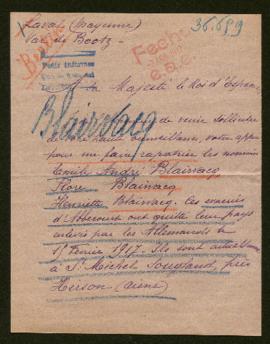 Laval (Mayenne)
Val de Bootz
36.699
Fecht
Petits Infirmes
Sa Majesté le Roi d'Espagne
Blairvacq
de venir solliciter
de votre haute bienveillance, votre appui
pour me faire rapatrier les nommés
Emile André Blairvacq
Flore Blairvacq
Henriette Blairvacq. les évacués
d'Abbécourt ont quitté leur pays
enlevés par les Allemands le
1er Février 1917. Ils sont actuellement
à St Michel Sougland, près
Hirson (Aisne)